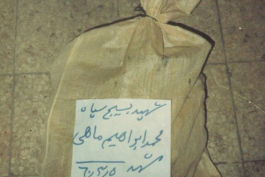 شهید بسیج سپاه
محمد ابراهیم ماهی
مشهد